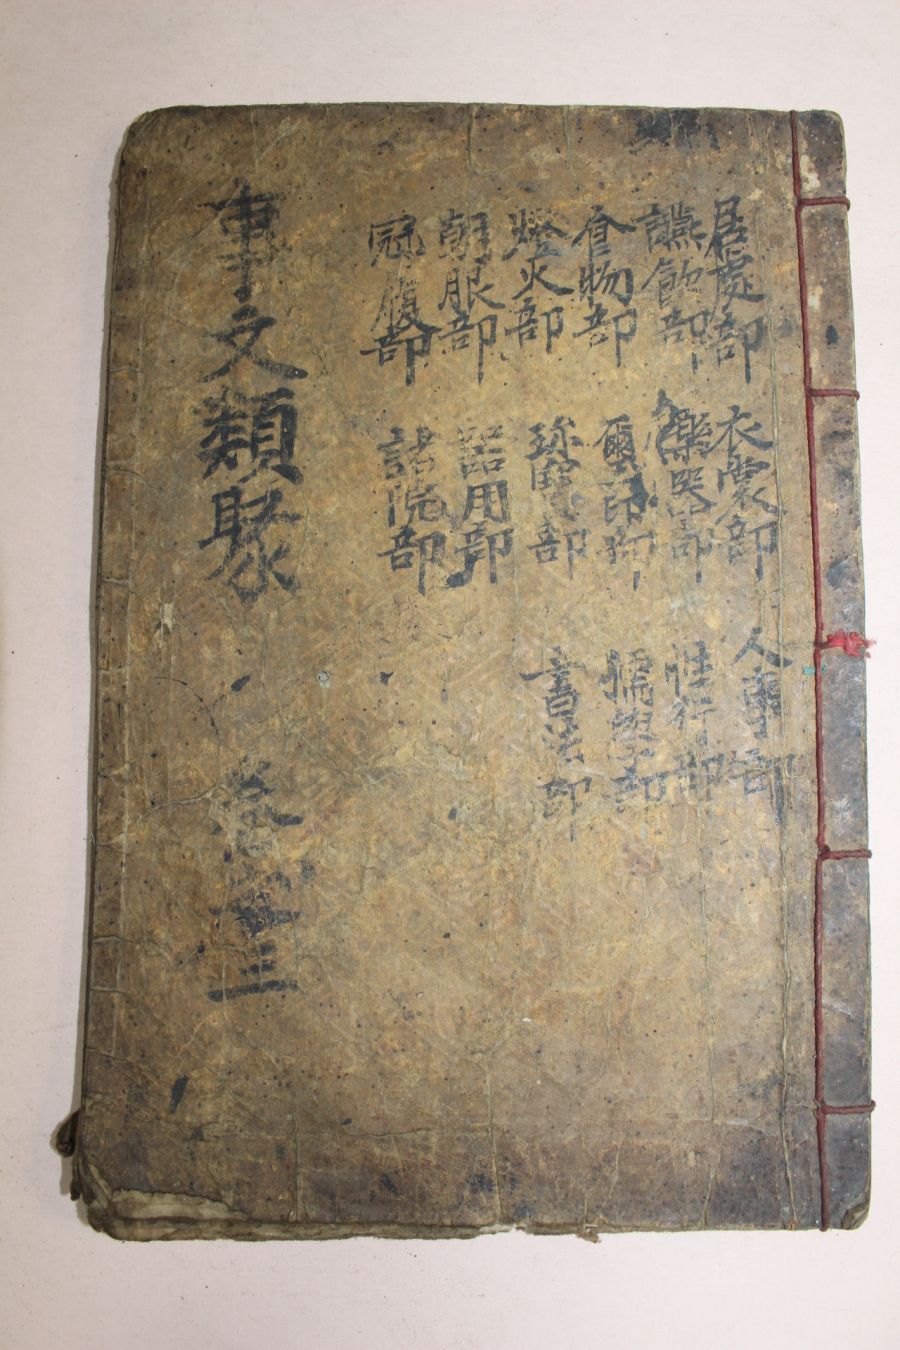 居處部 衣裳部 人事部
讌飮部 樂器部 性行部
食物部 璽印部 儒學部
燈火部 珍寶部 書法部
朝服部 器用部
冠履部 諸院部
事文類聚 卷